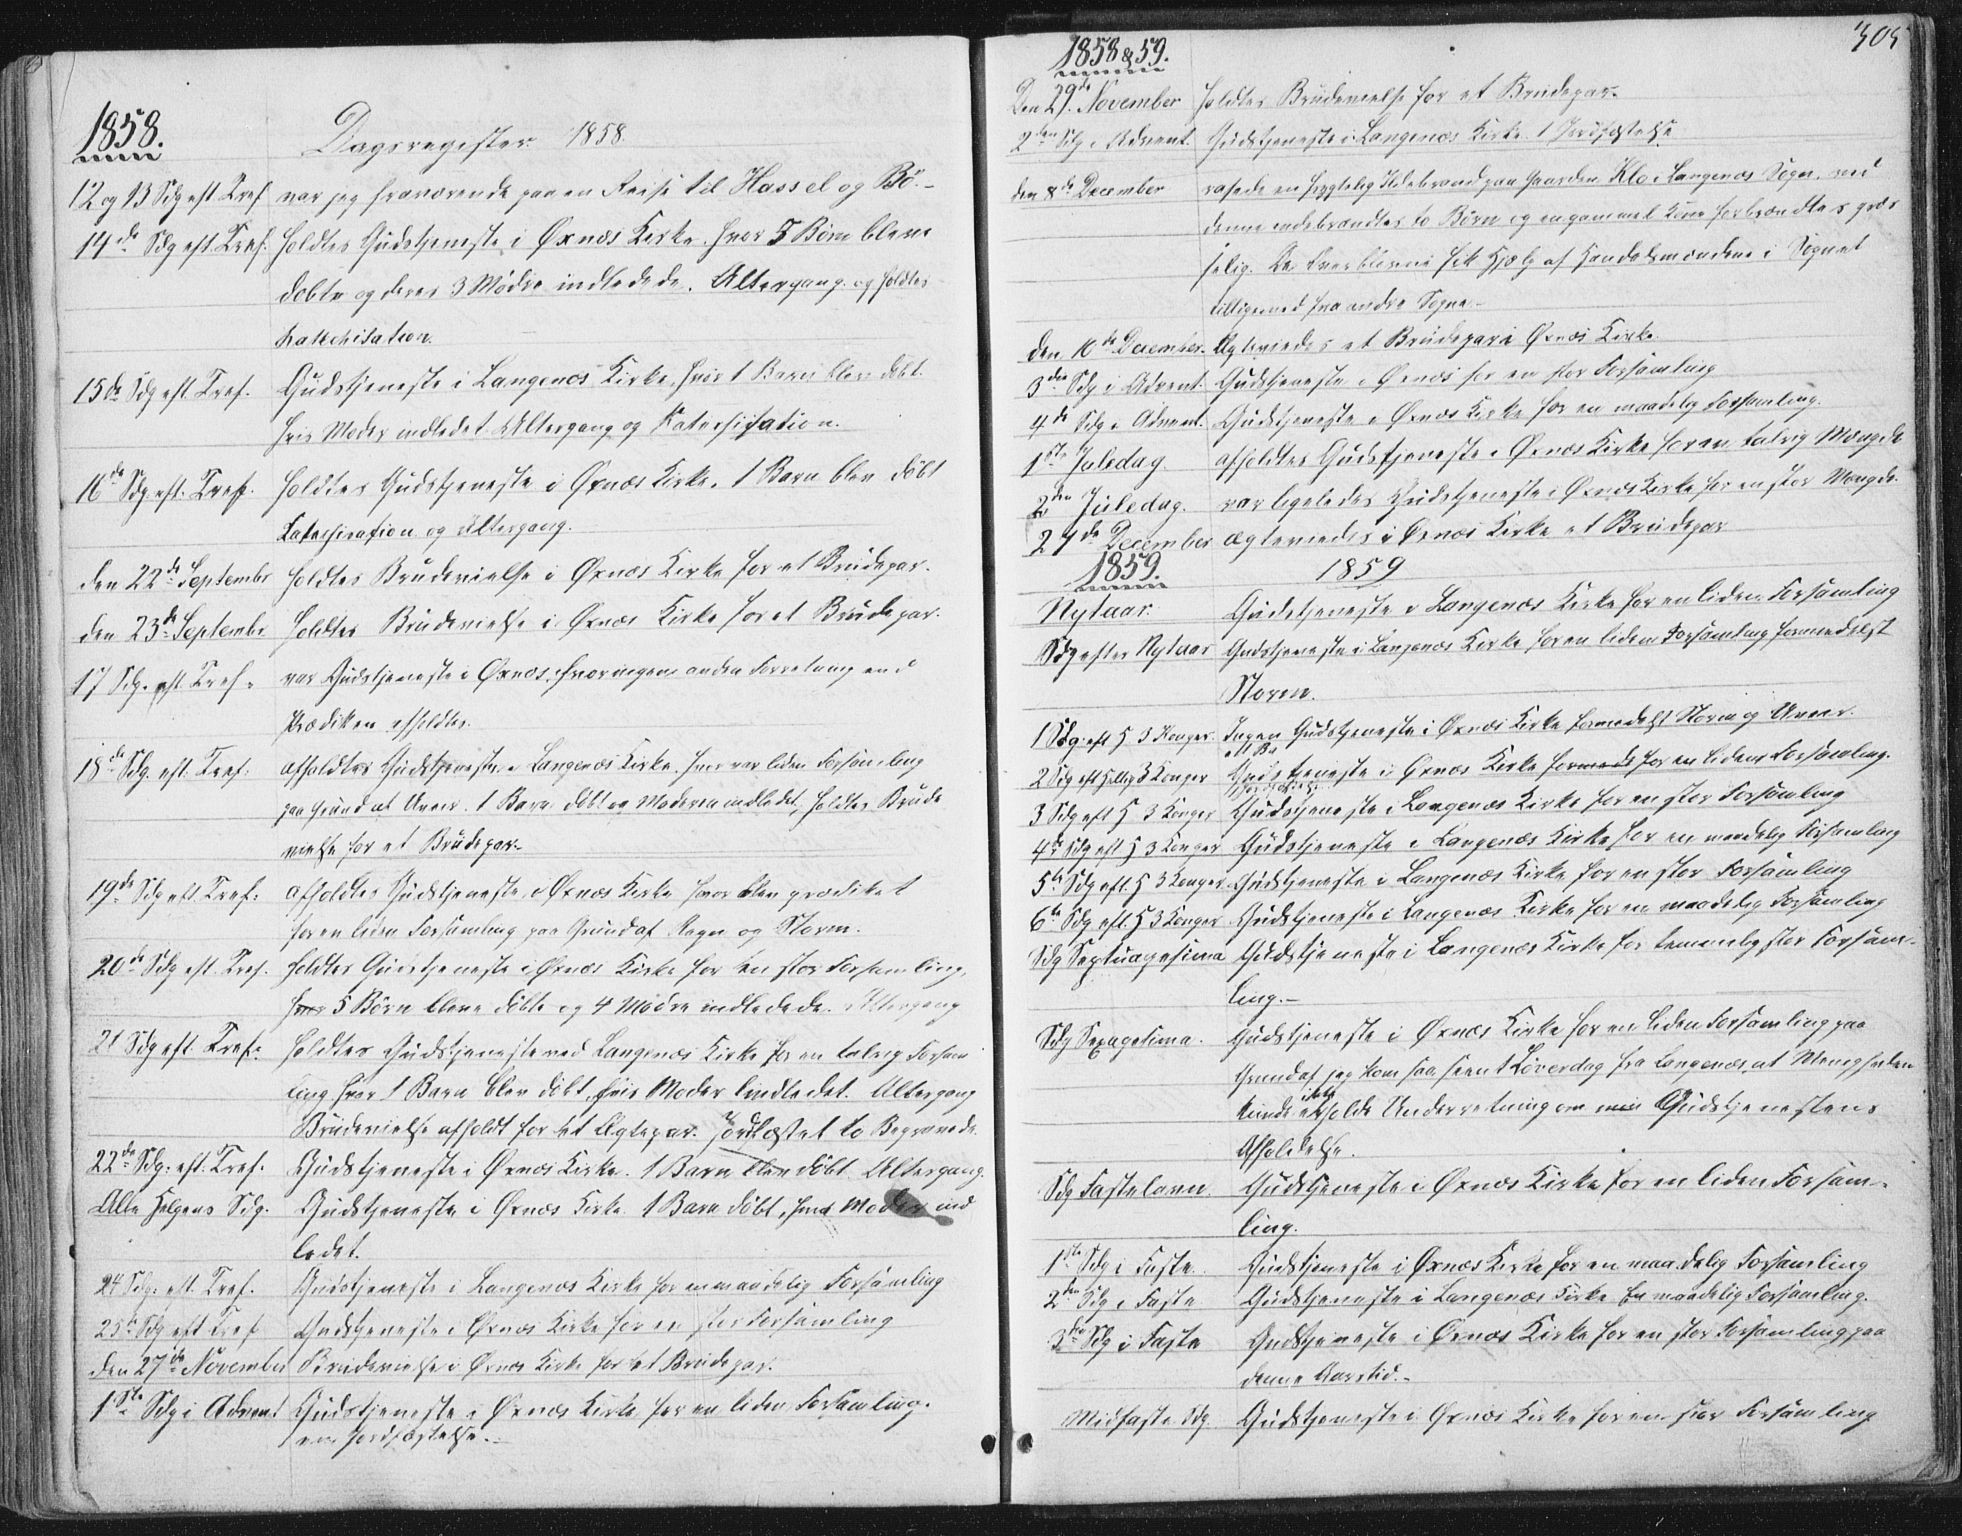 1858.
Dagsregister 1858.
12 og 13 Sdg eft Tref var jeg fraværende paa en Reise til Hassel og Bö.-
14de Sdg eft. Tref. holdtes Gudstjeneste i Øxnæs Kirke hvor 5 Børn bleve
døbte og deres 3 Mødre indledede. Altergang og holdtes
Katechisation.
15de Sdg eft. Tref. Gudstjeneste i Langenæs Kirke, hvor 1 Barn blev døbt.
hvis Moder indledet. Altergang og Katechisation.
16de Sdg eft. Tref. holdtes Gudstjeneste i Øxnæs Kirke. 1 Barn blev döbt
Katechisation og Altergang.
den 22de September holdtes Brudevielse i Øxnæs Kirke for et Brudepar.
den 23de September holdtes Brudevielse i Øxnæs Kirke for et Brudepar.
17 Sdg. eft. Tref. var Gudstjeneste i Øxnæs, hvor ingen anden Forretning end
Prædiken afholdtes.
18de Sdg. eft. Tref. afholdtes Gudstjeneste i Langenæs Kirke hvor var liden Forsamling
paa Grund af Uveir. 1 Barn døbt og Moderen indledet, holdtes Brude
vielse for et Brudepar.-
19de Sdg eft. Tref. afholdtes Gudstjeneste i Øxnæs Kirke hvor blev prædiket
for en liden Forsamling paa Grund af Regn og Storm.
20de Sdg eft. Tref. holdtes Gudstjeneste i Øxnæs Kirke for en stor Forsamling,
hvor 5 Börn bleve döbte og 4 Mödre indledede. Altergang
21 Sdg eft. Tref. holdtes Gudstjeneste ved Langenæs Kirke for en talrig Forsam
ling hvor 1 Barn blev döbt, hvis Moder indledet. Altergang
Brudevielse afholdt for et Ægtepar. Jordfæstet to Begravede.
22de Sdg. eft. Tref. Gudstjeneste i Øxnæs Kirke. 1 Barn blev döbt. Altergang.
Alle Helgens Sdg. Gudstjeneste i Øxnæs Kirke. 1 Barn döbt, hvis Moder ind
ledet.
24 Sdg. eft. Tref. Gudstjeneste i Langenæs Kirke for en maadelig Forsamling
25de Sdg eft Tref Gudstjeneste i Øxnæs Kirke for en stor Forsamling
den 27de November Brudevielse i Øxnæs Kirke for et Brudepar.
1ste Sdg i Advent Gudstjeneste i Øxnæs Kirke for en liden Forsamling.
en Jordfæstelse.-
305
1858 & 59.
Den 29de November holdtes Brudevielse for et Brudepar.
2den Sdg i Advent. Gudstjeneste i Langenæs Kirke 1 Jordfæstelse.
den 8de December rasede en frygtelig Ildebrand paa Gaarden Klo i Langenæs Sogn, ved
denne indebrændtes to Børn og en gammel Kone forbrændtes græs
selig. De Overblevne fik Hjælp af Handelsmændene i Sognet
tilligemed fra andre Sogne.-
den 10de December. Ægteviedes et Brudepar i Øxnæs Kirke.
3die Sdg i Advent. Gudstjeneste i Øxnæs for en stor Forsamling
4de Sdg i Advent. Gudstjeneste i Øxnæs Kirke for en maadelig Forsamling.
1ste Juledag. afholdtes Gudstjeneste i Øxnæs Kirke for en talrig Mængde
2den Juledag. var ligeledes Gudstjeneste i Øxnæs Kirke for en stor Mængde.
27de December ægteviedes i Øxnæs Kirke et Brudepar
1859. 1859
Nytaar. Gudstjeneste i Langenæs Kirke for en liden Forsamling
Sdg efter Nytaar Gudstjeneste i Langenæs Kirke for en liden Forsamling formedelst
Storm.
1 Sdg. eft H 3 Konger. Ingen Gudstjeneste i Øxnæs Kirke formedelst Storm og Uveir.
2 Sdg eft Hellig 3 Konger Gudstjeneste i Øxnæs Kirke formede for en liden Forsamling.
3 Sdg eft H 3 Konger Gudstjeneste i Langenæs Kirke for en stor Forsamling
4de Sdg eft H 3 Konger Gudstjeneste i Langenæs Kirke for en maadelig Forsamling
5te Sdg eft. H 3 Konger Gudstjeneste i Langenæs Kirke for en stor Forsamling
6te Sdg eft. H 3 Konger Gudstjeneste i Langenæs Kirke for en maadelig Forsamling
Sdg Septuagesima Gudstjeneste i Langenæs Kirke for temmelig stor Forsam-
ling.-
Sdg Sexagesima. Gudstjeneste i Øxnæs Kirke for en liden Forsamling paa
Grund af jeg kom saa seent Løverdag fra Langenæs, at Menigheden
kunde ikke holde Underretning om min Gudstjenestens
Afholdelse.
Sdg Fastelavn. Gudstjeneste i Øxnæs Kirke for en liden Forsam-
ling.
1ste Sdg i Faste. Gudstjeneste i Øxnæs Kirke for en maadelig Forsamling
2den Sdg i Faste Gudstjeneste i Langenæs Kirke En maadelig Forsamling.
3die Sdg i Faste Gudstjeneste i Øxnæs Kirke for en stor Forsamling paa
denne Aarstid.-
Midfaste Sdg. Gudstjeneste i Øxnæs Kirke for en stor Forsamling